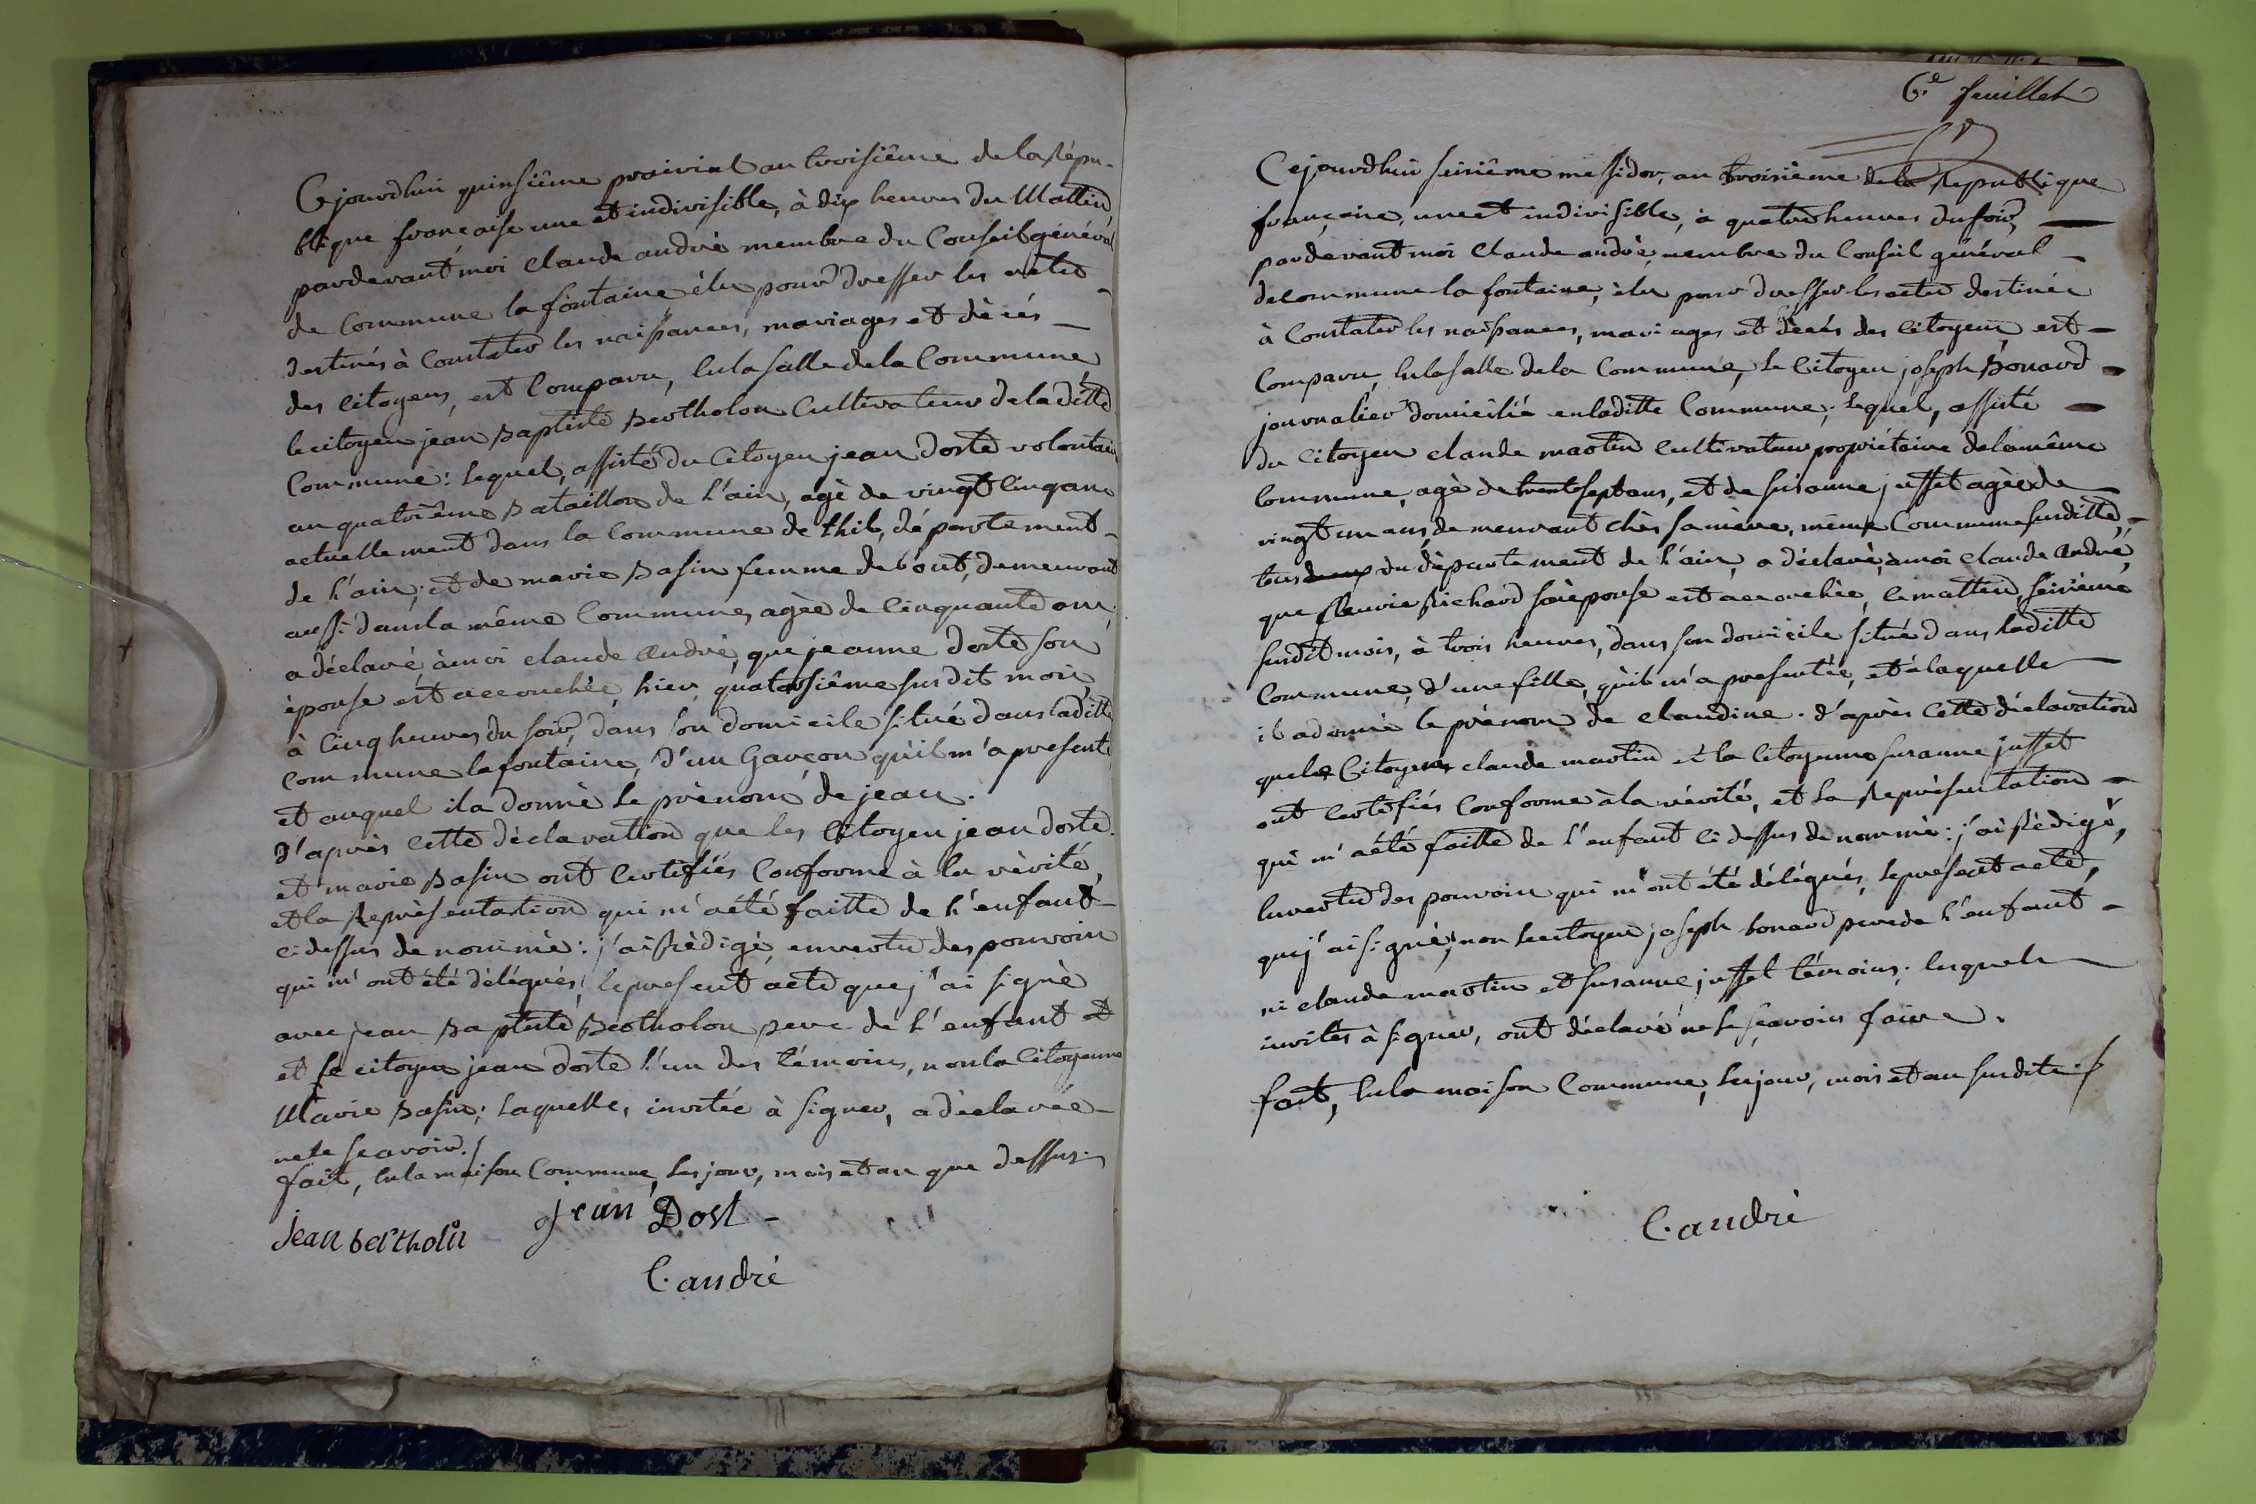 Cejourdhui quinsiême prairial an troisiême de la Répu-
blique française une et indivisible, à dix heures du Mattin,
pardevant moi claude andrè membre du Conseil général
de Commune la fontaine élu pour dresser les actes
destinés à Constater les naissances, mariages et dècés
des citoyens, est Comparu, en la salle de la Commune,
le citoyen jean Baptiste Bertholon Cultivateur de la ditte
Commune: lequel, assisté du Citoyen jean doste volontaire
au quatrième Bataillon de l'ain, agè de vingt Cinq ans
actuellement dans la Commune de thil, département
de l'ain, et de marie Basin femme demeurant
aussi dans la même Commune, agée de Cinquante ans,
a déclaré à moi claude Andrè, que jeanne doste son
épouse est accouchée, hier, quatorsiême susdit mois,
à Cinq heures du soir, dans son domicile situé dans laditte
Commune la fontaine, d'un Garçon qu'il m'a presenté
et auquel il a donné le prènom de jean.
d'après cette déclaration que les Citoyen jean doste
et marie Basin ont Certifiés Conforme à la vèrité,
et la Représentation qui m'a été faitte de l'enfant
ci dessus denommé: j'ai Rèdigé, en vertu des pouvoirs
qui m'ont été délégués, le present acte que j'ai signé
avec jean Baptiste Bertholon pere de l'enfant et
et le citoyen jean doste l'un des témoins, non la Citoyenne
Marie Basin; laquelle, invitée à signer, a déclarée
ne le sçavoir./
fait, en la maison Commune, les jour, mois et an que dessus.
jean bertholon jean Dost
C. andrè
6.e feuillet
Cejourdhui seisiême messidor, an troisième de la Republique
française, une et indivisible, à quatre heures du soir,
pardevant moi Claude andrè, membre du Conseil général
de commune la fontaine, élu pour dresser les actes destinés
à Constater les naissances, mariages et décés des Citoyens est
Comparu, en la salle de la Commune, le Citoyen joseph Bonard
journalier domicilié en laditte Commune; lequel, assisté
du Citoyen claude martin Cultivateur propriétaire de la même
Commune, agè de trente sept ans, et de susanne juffet agée de
vingt un ans, demeurant chès sa mère, même Commune susditte,
tous du département de l'ain, a déclaré, à moi claude Andrè,
que fleurie Richard son épouse est accouchée, le mattin, seisième
susdit mois, à trois heures, dans son domicile situé dans laditte
Commune, d'une fille, qu'il m'a presentée, et à laquelle
il a donné le prènom de claudine. d'après Cette déclaration
que les Citoyens claude martin et la Citoyenne susanne juffet
ont Certifiés Conforme à la vérité, et la Représentation
qui m'a été faitte de l'enfant ci dessus denommè: j'ai Rèdigé,
en vertu des pouvoirs qui m'ont été délégués, le présent acte,
que j'ai signé, non le citoyen joseph bonard pere de l'enfant
ni claude martin et susanne juffet témoins; lesquels
invités à signer, ont déclaré ne le sçavoir faire.
fait, en la maison Commune, les jour, mois et an susdits./
C. andrè